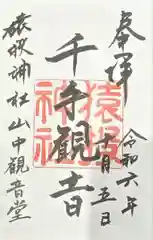 奉拝
令和六年
十一月五日
千手観音
猿投神社
猿投神社山中観音堂